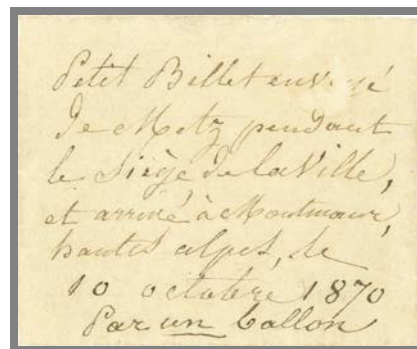 Petit Billet envoyé
de Metz pendant
le Siège de la Ville,
et arrivé à Montmaur,
hautes alpes, le
10 octobre 1870
Par un ballon